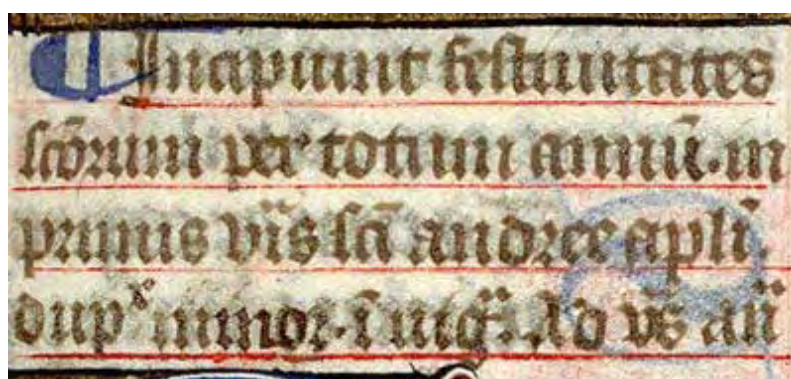 ¶ Incipiunt festiuitates
scōrum per totum annū. in
primis viīs scī andree apli.
dupˣ minor. ī
Ad vs̄ añ